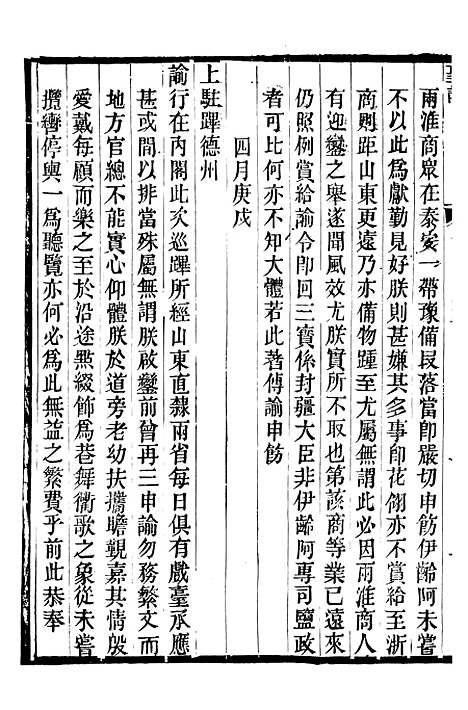 兩淮商眾在泰安一帶豫備叚落當卽嚴切申飭伊齡阿未嘗
不以此爲獻勤見好朕則甚嫌其多事卽花翎亦不賞給至浙
商則距山東更遠乃亦備物踵至尤屬無謂此必因兩淮商人
有迎鑾之舉遂聞風效尤朕實所不取也第該商等業已遠來
仍照例賞給諭令卽回三寶係封疆大臣非伊齡阿專司鹽政
者可比何亦不知大體若此著傳諭申飭
四月庚戌
上駐蹕德州
諭行在內閣此次巡蹕所經山東直隸兩省每日俱有戲臺承應
甚或間以排當殊屬無謂朕啟鑾前曾再三申諭勿務繁文而
地方官總不能實心仰體朕於道旁老幼扶攜瞻覲嘉其情殷
愛戴每顧而樂之至於沿途㸃綴飾爲巷舞衢歌之象從未嘗
攬轡停輿一爲聽覽亦何必爲此無益之繁費乎前此恭奉